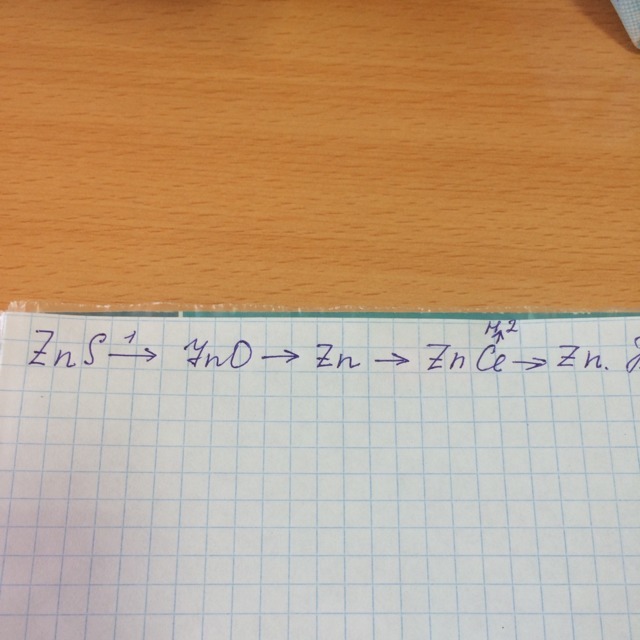 H2
ZnS 1→ ZnO → Zn → ZnCl → Zn.